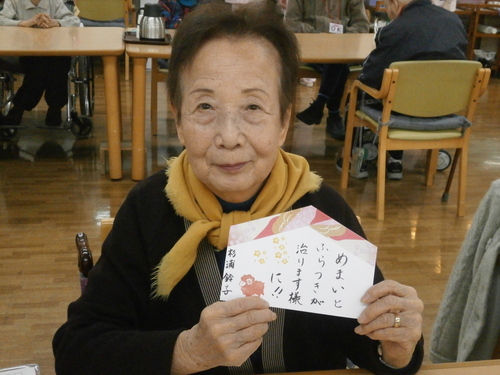 めまいと
ふらつきが
治ります様
に!!
杉浦鈴子